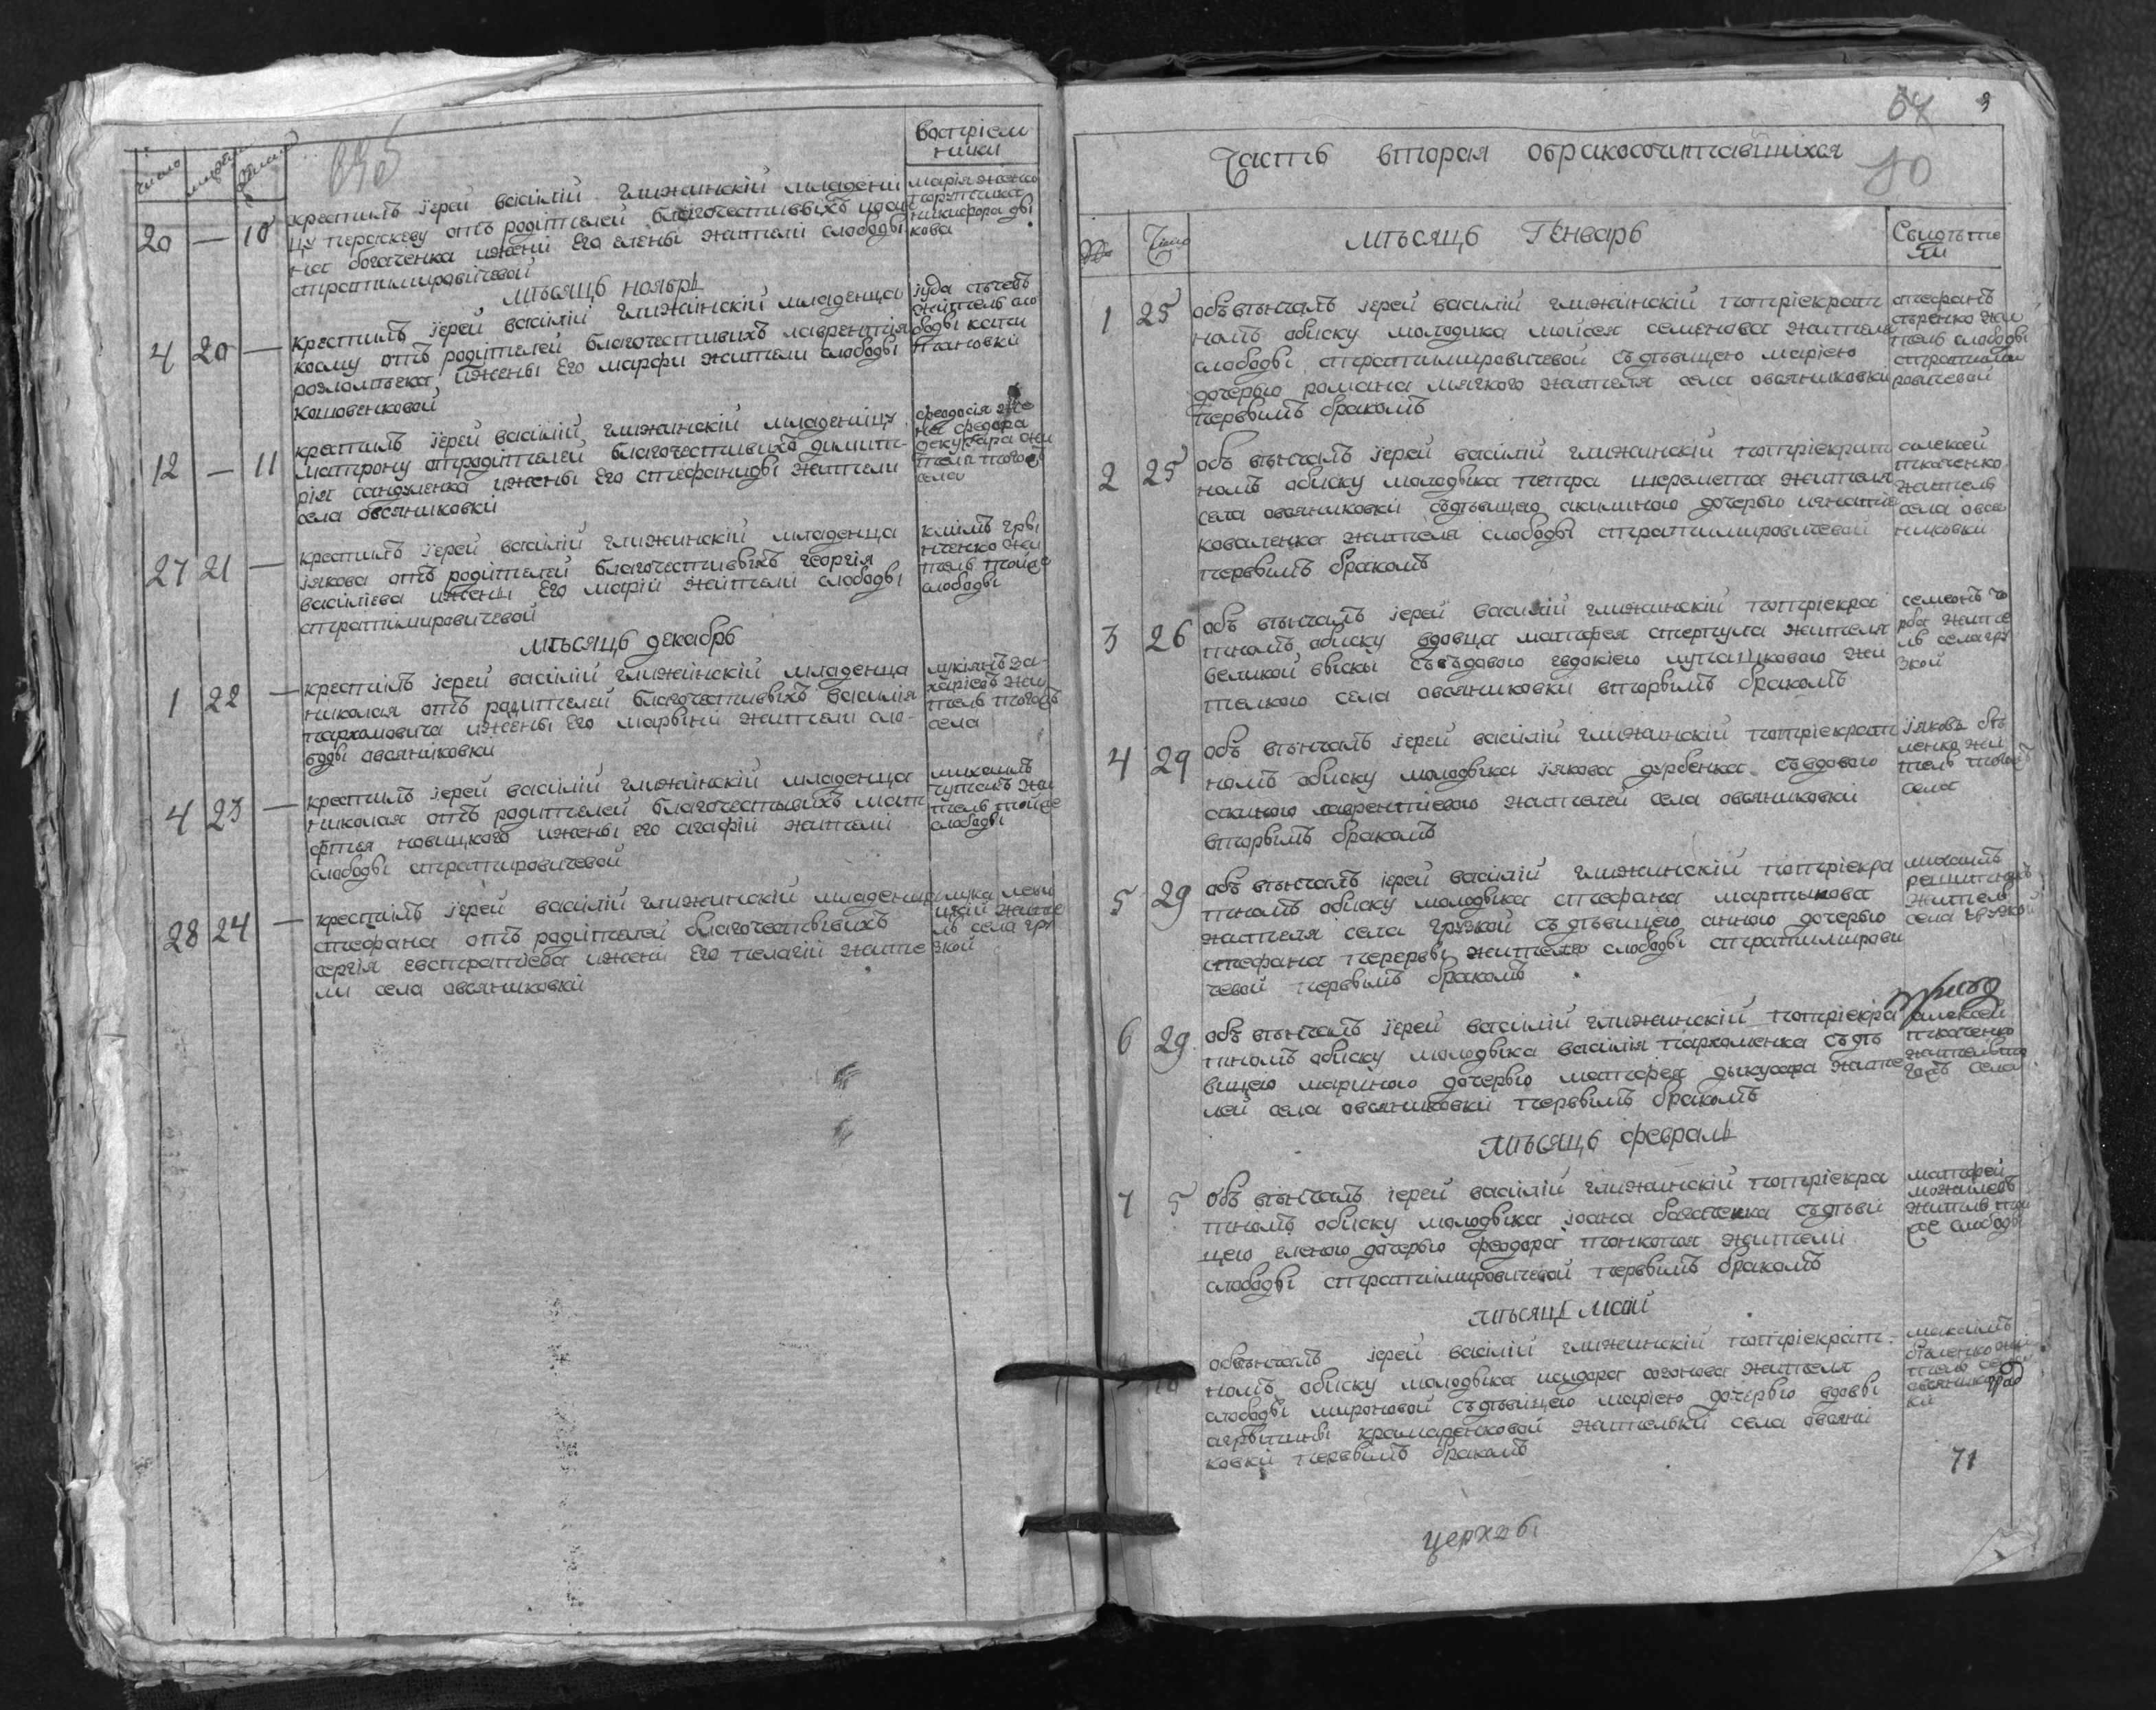 число
Воспріем
ники
20 — 10 крестилъ іерей василій глижинскій младени
цу пераскеву отъ родителей благочестивыхъ
на богаченка ижени его елены жители слободы
стратимировичевой
марія жена
никифора ды
кова
мѣсяцъ ноябрь
4 20 — крестилъ іерей василій глижинскій младенца
козму отъ родителей благочестивихъ лаврентія
ижены его марфи жители слободы
кошовенковой
іуда сычевъ
житель сло
боды кати
риновки
12 — 11 крестилъ іерей василій глижинскій младеницу
матрону отродителей благочестивихъ димит-
рія сандуленка ижены его стефаниды жители
села овсяниковки
феодосія же
на федора
декусара жи
теля того
села
27 21 — крестилъ іерей василій глижинскій младенца
іякова отъ родителей благочестивыхъ георгія
василіева ижены его маріи жители слободы
стратимировичевой
климъ гры
ценко жи
тель тойже
слободы
мѣсяцъ декабръ
1 22 — крестилъ іерей василій глижинскій младенца
николая отъ родителей благочестивыхъ василія
пархомовича ижены его марыни жители сло-
боды овсяниковки
лукіянъ за-
харіевъ жи
тель тогожъ
села
4 23 — крестилъ іерей василій глижинскій младенца
николая отъ родителей благочестывихъ мат
фтея новицкого ижены его агафіи жители
слободы стратировичевой
михаилъ
чупакъ жи
тель тойже
слободы
28 24 — крестилъ іерей василій глижинскій младенца
стефана отъ родителей благочестывыхъ
сергія евстратіева ижени его пелагіи жите
ли села овсяниковки
лука леви
цкій жите
ль села гру
зкой
57
10
Часть вторая обракосочитавшихся
Число
мѣсяцъ Генваръ
Свидѣте
ли
1 25 объвѣнчалъ іерей василій глижинскій потріекрат
номъ обиску молодика моисея семенова жителя
слободы стратимировичевой съдѣвицею маріею
дочерью романа мягкого жителя села овсяниковки
первымъ бракомъ
стефанъ
сѣренко жи
тель слободы
стратими
ровичевой
2 25 объ вѣнчалъ іерей василій глижинскій потріекрат
номъ обиску молодыка петра шеремета жителя
села овсяниковки съдѣвицею акилиною дочерью игнатіе
коваленка жителя слободы стратимировичевой
первымъ бракомъ
алексей
ткаченко
житель
села овся
никовки
3 26 объ вѣнчалъ іерей василій глижинскій потріекра
тномъ обиску вдовца матфея стерпула жителя
великой выски съвдовою евдокіею лупашковою жи
телкою села овсяниковки вторымъ бракомъ
семіонъ чо
рба жите
ль села гру
зкой
4 29 объ вѣнчалъ іерей василій глижинскій потріекрат
номъ обиску молодыка іякова дурбенка съвдовою
лаврентіевою жителей села овсяниковки
вторымъ бракомъ
іяковъ бѣ
ленко жи
тель тогожъ
села
5 29 объ вѣнчалъ іерей василій глижинскій потріекра
тномъ обиску молодыка стефана мартынова
жителя села грузкой съдѣвицею анною дочерью
стефана перервы жителя слободы стратимирови
чевой первымъ бракомъ
михаилъ
житель
села грузкой
6 29 объ вѣнчалъ іерей василій глижинскій потріекра
тномъ обиску молодыка василія пархоменка съдѣ
вицею мариною дочерью матфея дыкусара жите
лей села овсяниковки первымъ бракомъ
алексей
ткаченко
житель то
гожъ села
мѣсяцъ февраль
7 5 объ вѣнчалъ іерей василій глижинскій потріекра
тномъ обиску молодыка іоана богаченка съдѣви
цею еленою дочерью феодора тонкопія жители
слободы стратимировичевой первымъ бракомъ
матфей
можаловъ
житель той
же слободы
мѣсяцъ май
объвѣнчалъ іерей василій глижинскій потріекрат.
номъ обиску молодыка исидора созонова жителя
слободы мироновой съдѣвицею маріею дочерью вдовы
крамаренковой жительки села овсяни
ковки первымъ бракомъ
максимъ
бѣленко жи
тель села
овсяников
ки
71
церкви